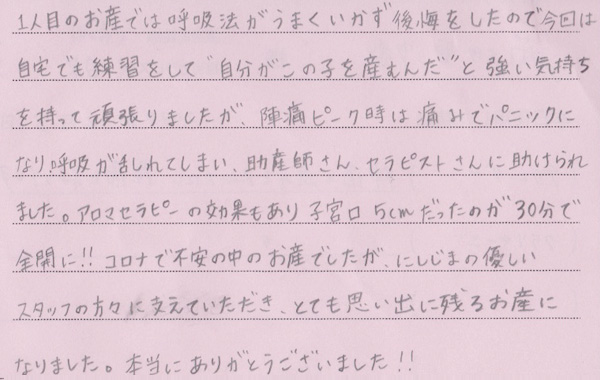 1人目のお産では呼吸法がうまくいかず後悔をしたので今回は
自宅でも練習をして"自分がこの子を産むんだ"と強い気持ち
を持って頑張りましたが、陣痛ピーク時は痛みでパニックに
なり呼吸が乱れてしまい、助産師さん、セラピストさんに助けられ
ました。アロマセラピーの効果もあり子宮口5cmだったのが30分で
全開に!!コロナで不安の中のお産でしたが、にしじまの優しい
スタッフの方々に支えていただき、とても思い出に残るお産に
なりました。本当にありがとうございました!!